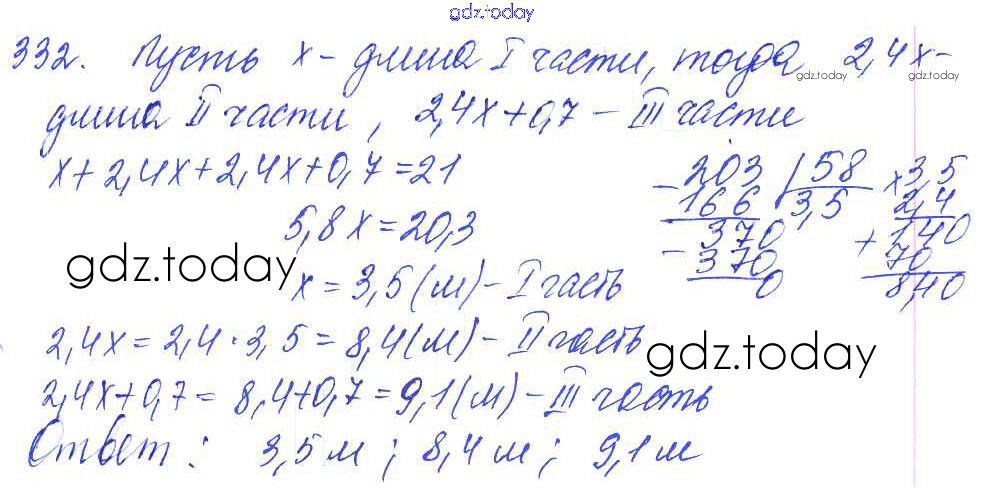 gdz.today
332. Пусть x - длина I части, тогда 2,4x -
gdz.today gdz.today
длина II части, 2,4x+0,7 - III части
x+2,4x+2,4x+0,7=21
5,8x=20,3
gdz.today
x = 3,5 (м) - I часть
2,4x = 2,4 · 3,5 = 8,4 (м) - II часть
gdz.today
2,4x+0,7 = 8,4+0,7 = 9,1 (м) - III часть
Ответ: 3,5 м; 8,4 м; 9,1 м
- 203 | 58
166 3,5
- 370
370
0
x 3,5
2,4
+ 140
70
8,40